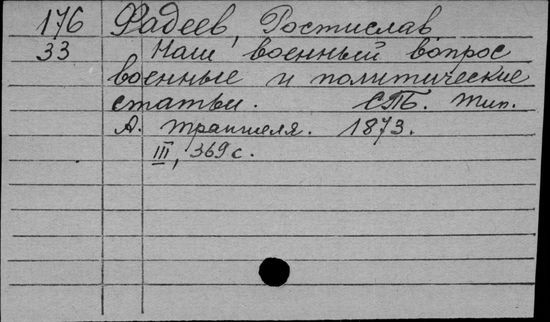 176 Фадеев, Ростислав.
33 Наш военный вопрос
военные и политические
статьи. СПБ. тип.
А. Траншеля. 1873.
III, 369 с.